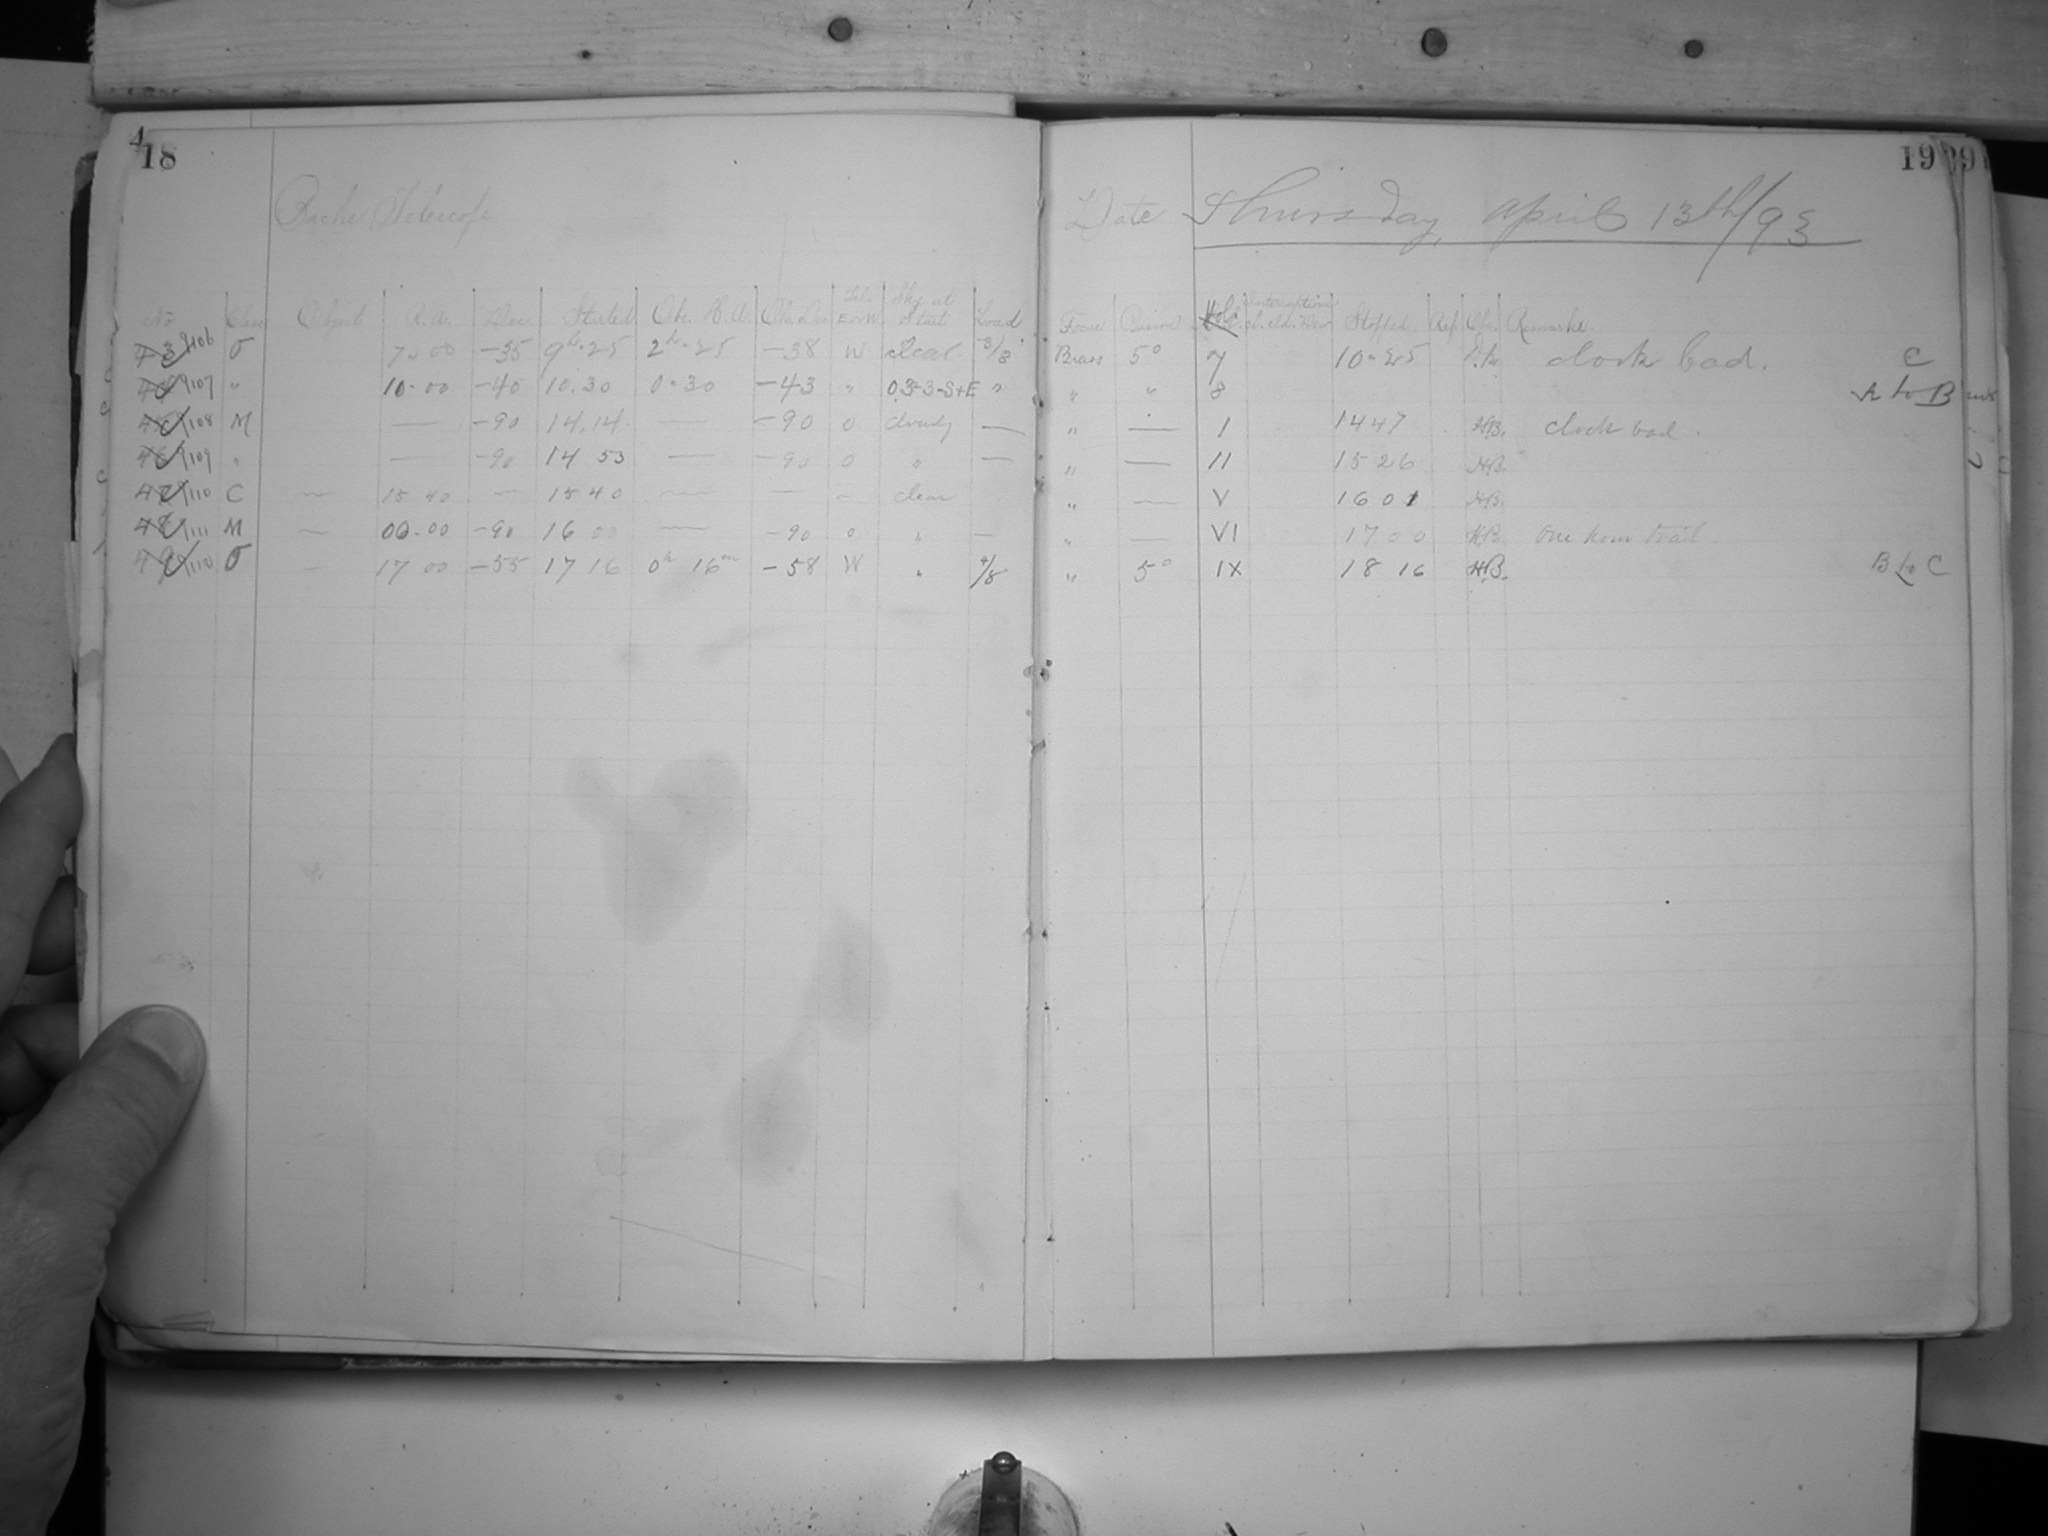 4
18
Bache Telescope
No Class Object R.A. Dec. Started Obs. H.A. Obs. Dec Tel. E or W Sky at Start Load
43 9106 σ 7.00 -35 9h.25 2h.25 -38 W clear 3/8
44 9107 " 10.00 -40 10.30 0.30 -43 " 0.3-3-S+E "
45 9108 M — -90 14.14 — -90 0 cloudy —
46 9109 " — -90 14 53 — -90 0 " —
47 9110 C — 15 40 — 15 40 — — – clear
48 9111 M — 00.00 -90 16 00 — -90 0 " —
49 9112 σ – 17 00 -55 17 16 0h 16m -58 W " 4/8
19
Date Thursday, April 13th/93
Focus Holder Interruptions Stopped Ref Obs. Remarks.
Brass 5° 7 10.25 clock bad. C
" " 8 A to B
" — I 1447 H.B. clock bad.
" — II 15 26 H.B.
" — V 16 01 H.B.
" — VI 17 00 H.B. One hour trail.
" 5° IX 18 16 H.B. B to C